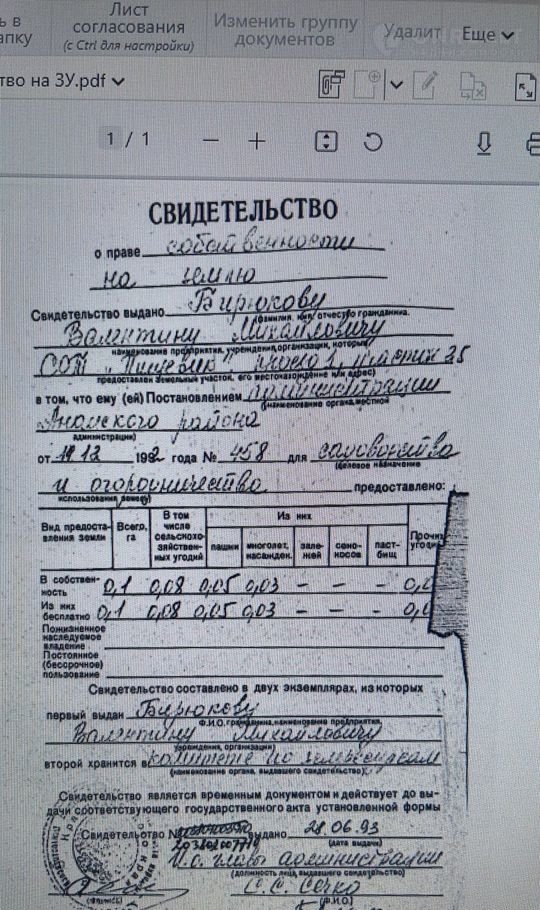 Лист
согласования
(с Ctrl для настройки)
Изменить группу
документов
Удалит
Еще
ть в
апку
тво на ЗУ.pdf
1 / 1
СВИДЕТЕЛЬСТВО
о праве собственности
на землю
Свидетельство выдано Бирюкову
(фамилия, имя, отчество гражданина,
Валентину Михайловичу
наименование предприятия, учреждения, организации, которым
СОТ "Пищевик", 1, участок 35
предоставлен земельный участок, его местонахождение или адрес)
в том, что ему (ей) Постановлением администрации
(наименование органа местной
Анапского района
администрации)
от 12 1992 года № 458 для садоводства
(целевое назначение
и огородничества предоставлено:
использования земель)
Вид предоста-
вления земли
Всего,
га
В том
числе
сельскохо-
зяйствен-
ных угодий
Из них
пашни
многолет.
насажден.
зале-
жей
сено-
косов
паст-
бищ
Прочих
угодий
В собствен-
ность 0,1 0,08 0,05 0,03 - - - 0,0
Из них
бесплатно 0,1 0,08 0,05 0,03 - - - 0,0
Пожизненное
наследуемое
владение
Постоянное
(бессрочное)
пользование
Свидетельство составлено в двух экземплярах, из которых
первый выдан Бирюкову
(Ф.И.О. гражданина, наименование предприятия,
Валентину Михайловичу
учреждения, организации)
второй хранится в комитете по земресурсам
(наименование органа, выдавшего свидетельство)
Свидетельство является временным документом и действует до вы-
дачи соответствующего государственного акта установленной формы
Свидетельство № выдано 28.06.93
(дата выдачи)
И.о. главы администрации
(должность лица, выдавшего свидетельство)
С.С. Сечко
(подпись)
(Ф.И.О.)